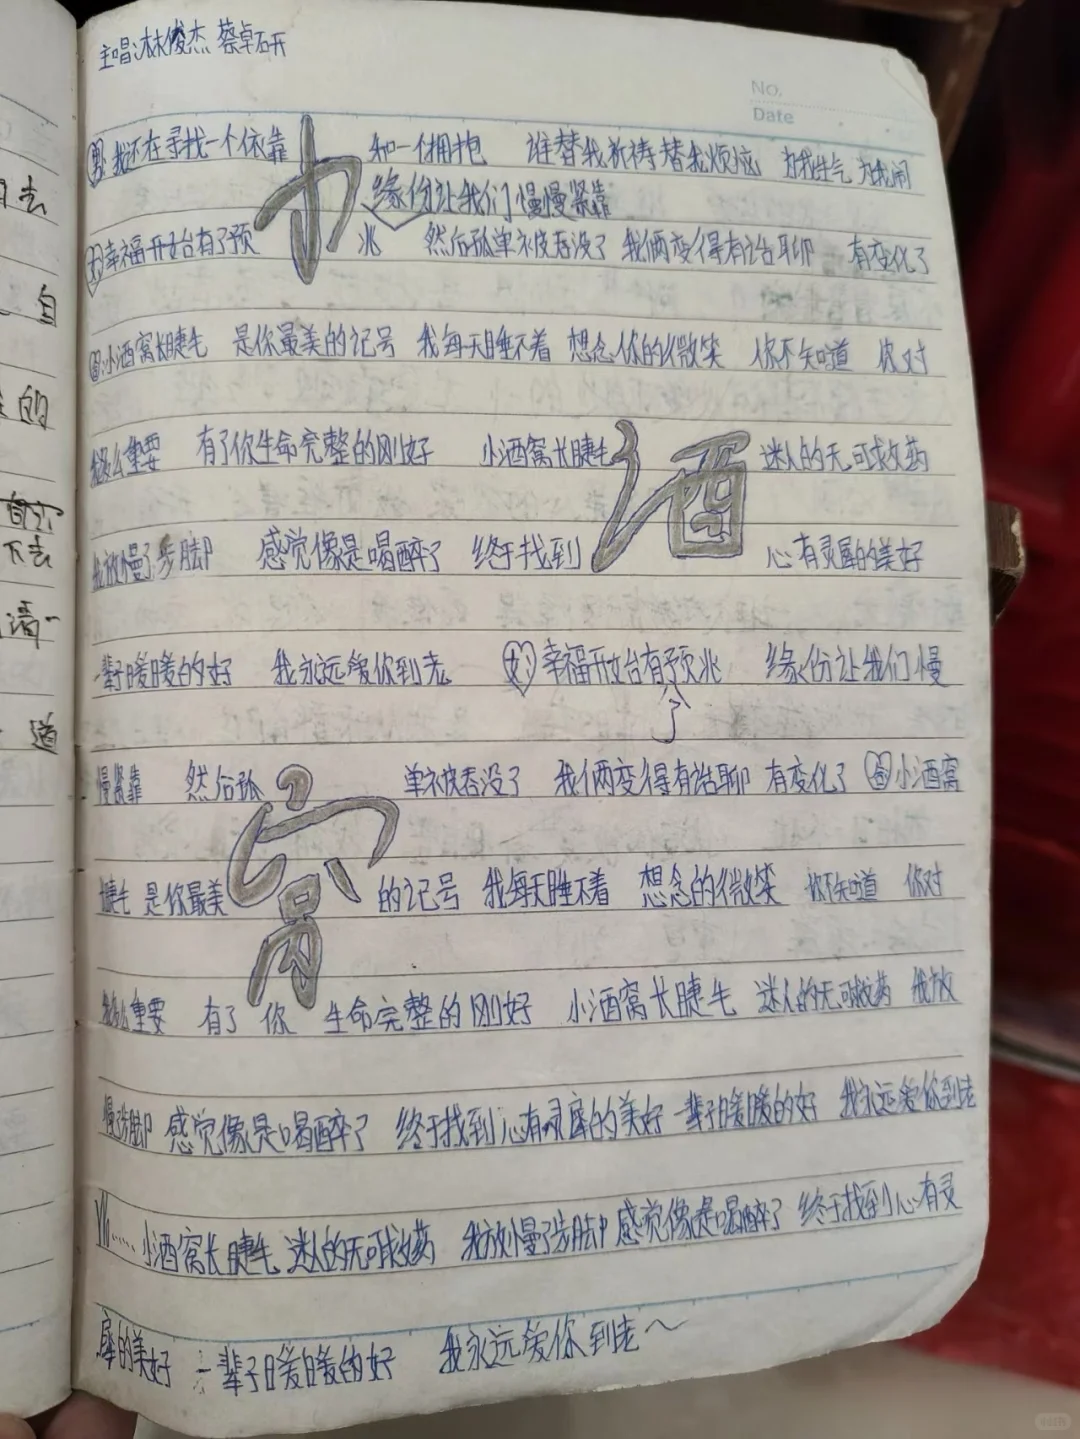 主唱:林俊杰 蔡卓妍
No.
Date
男 我还在寻找一个依靠 和一个拥抱 谁替我祈祷替我烦恼 为我生气为我闹
缘份让我们慢慢紧靠
女 幸福开始有了预兆 然后孤单被吞没了 我俩变得有话聊 有变化了
小酒窝长睫毛 是你最美的记号 我每天睡不着 想念你的微笑 你不知道 你对
我多么重要 有了你生命完整的刚好 小酒窝长睫毛 迷人的无可救药
我放慢了步脚 感觉像是喝醉了 终于找到 心有灵犀的美好
小
酒
窝
一辈子暖暖的好 我永远爱你到老 女 幸福开始有预兆 缘份让我们慢
了
慢紧靠 然后孤单被吞没了 我俩变得有话聊 有变化了 小酒窝
长睫毛 是你最美的记号 我每天睡不着 想念的微笑 你不知道 你对
我多么重要 有了你 生命完整的刚好 小酒窝长睫毛 迷人的无可救药 我放
慢步脚 感觉像是喝醉了 终于找到心有灵犀的美好 一辈子暖暖的好 我永远爱你到老
小酒窝长睫毛 迷人的无可救药 我放慢了步脚 感觉像是喝醉了 终于找到心有灵
犀的美好 一辈子暖暖的好 我永远爱你到老~
去
自
的
自去
下去
清一
道
小红书